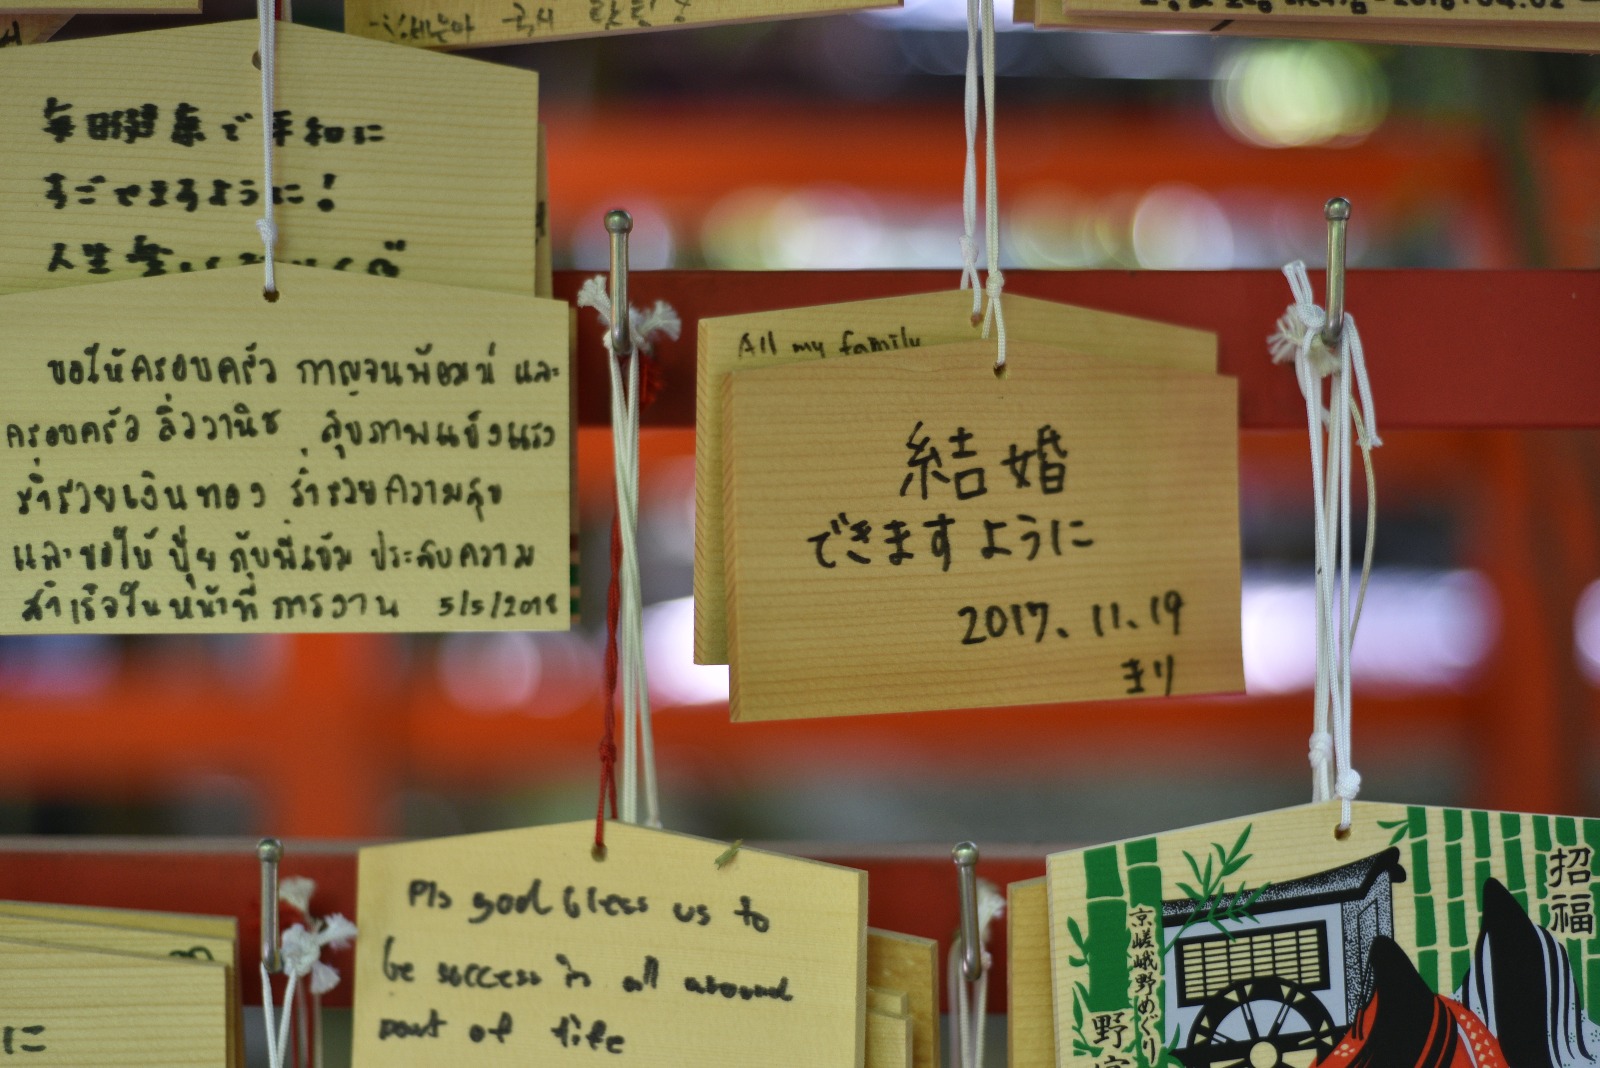 毎日健康で平和に
すごせますように!
人生
ขอให้ครอบครัว กาญจนพ้อมน์ และ
ครอบครัว ลิ่ววานิช สุขภาพแข็งแรง
ร่ำรวยเงินทอง ร่ำรวยความสุข
และขอให้ ปุ๋ย กับพี่เข้ม ประสบความ
สำเร็จในหน้าที่การงาน 5/5/2018
All my family
結婚
できますように
2017. 11. 19
まり
Pls good bless us to
be success in all around
part of life
に
招福
京嵯峨野めぐり
野宮